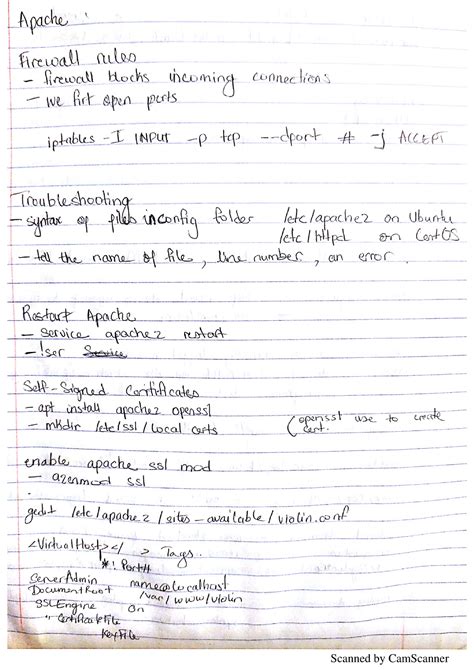 Apache :
Firewall rules
- firewall blocks incoming connections
- we firt open ports
iptables -I INPUT -p tcp --dport # -j ACCEPT
Troubleshooting
- syntax of files inconfig folder /etc/apache2 on Ubuntu
/etc/httpd on CentOS
- tell the name of file, line number, an error.
Restart Apache
- Service apache2 restart
- !ser Service
Self-Signed Certificates
- apt install apache2 openssl
- mkdir /etc/ssl/local certs (openssl use to create
cert.
enable apache ssl mod
- a2enmod ssl
gedit /etc/apache2/sites-available/violin.conf
<VirtualHost></ > Tags.
*: Port#
ServerAdmin name@localhost
DocumentRoot /var/www/violin
SSLEngine on
" CertificateFile
KeyFile
Scanned by CamScanner